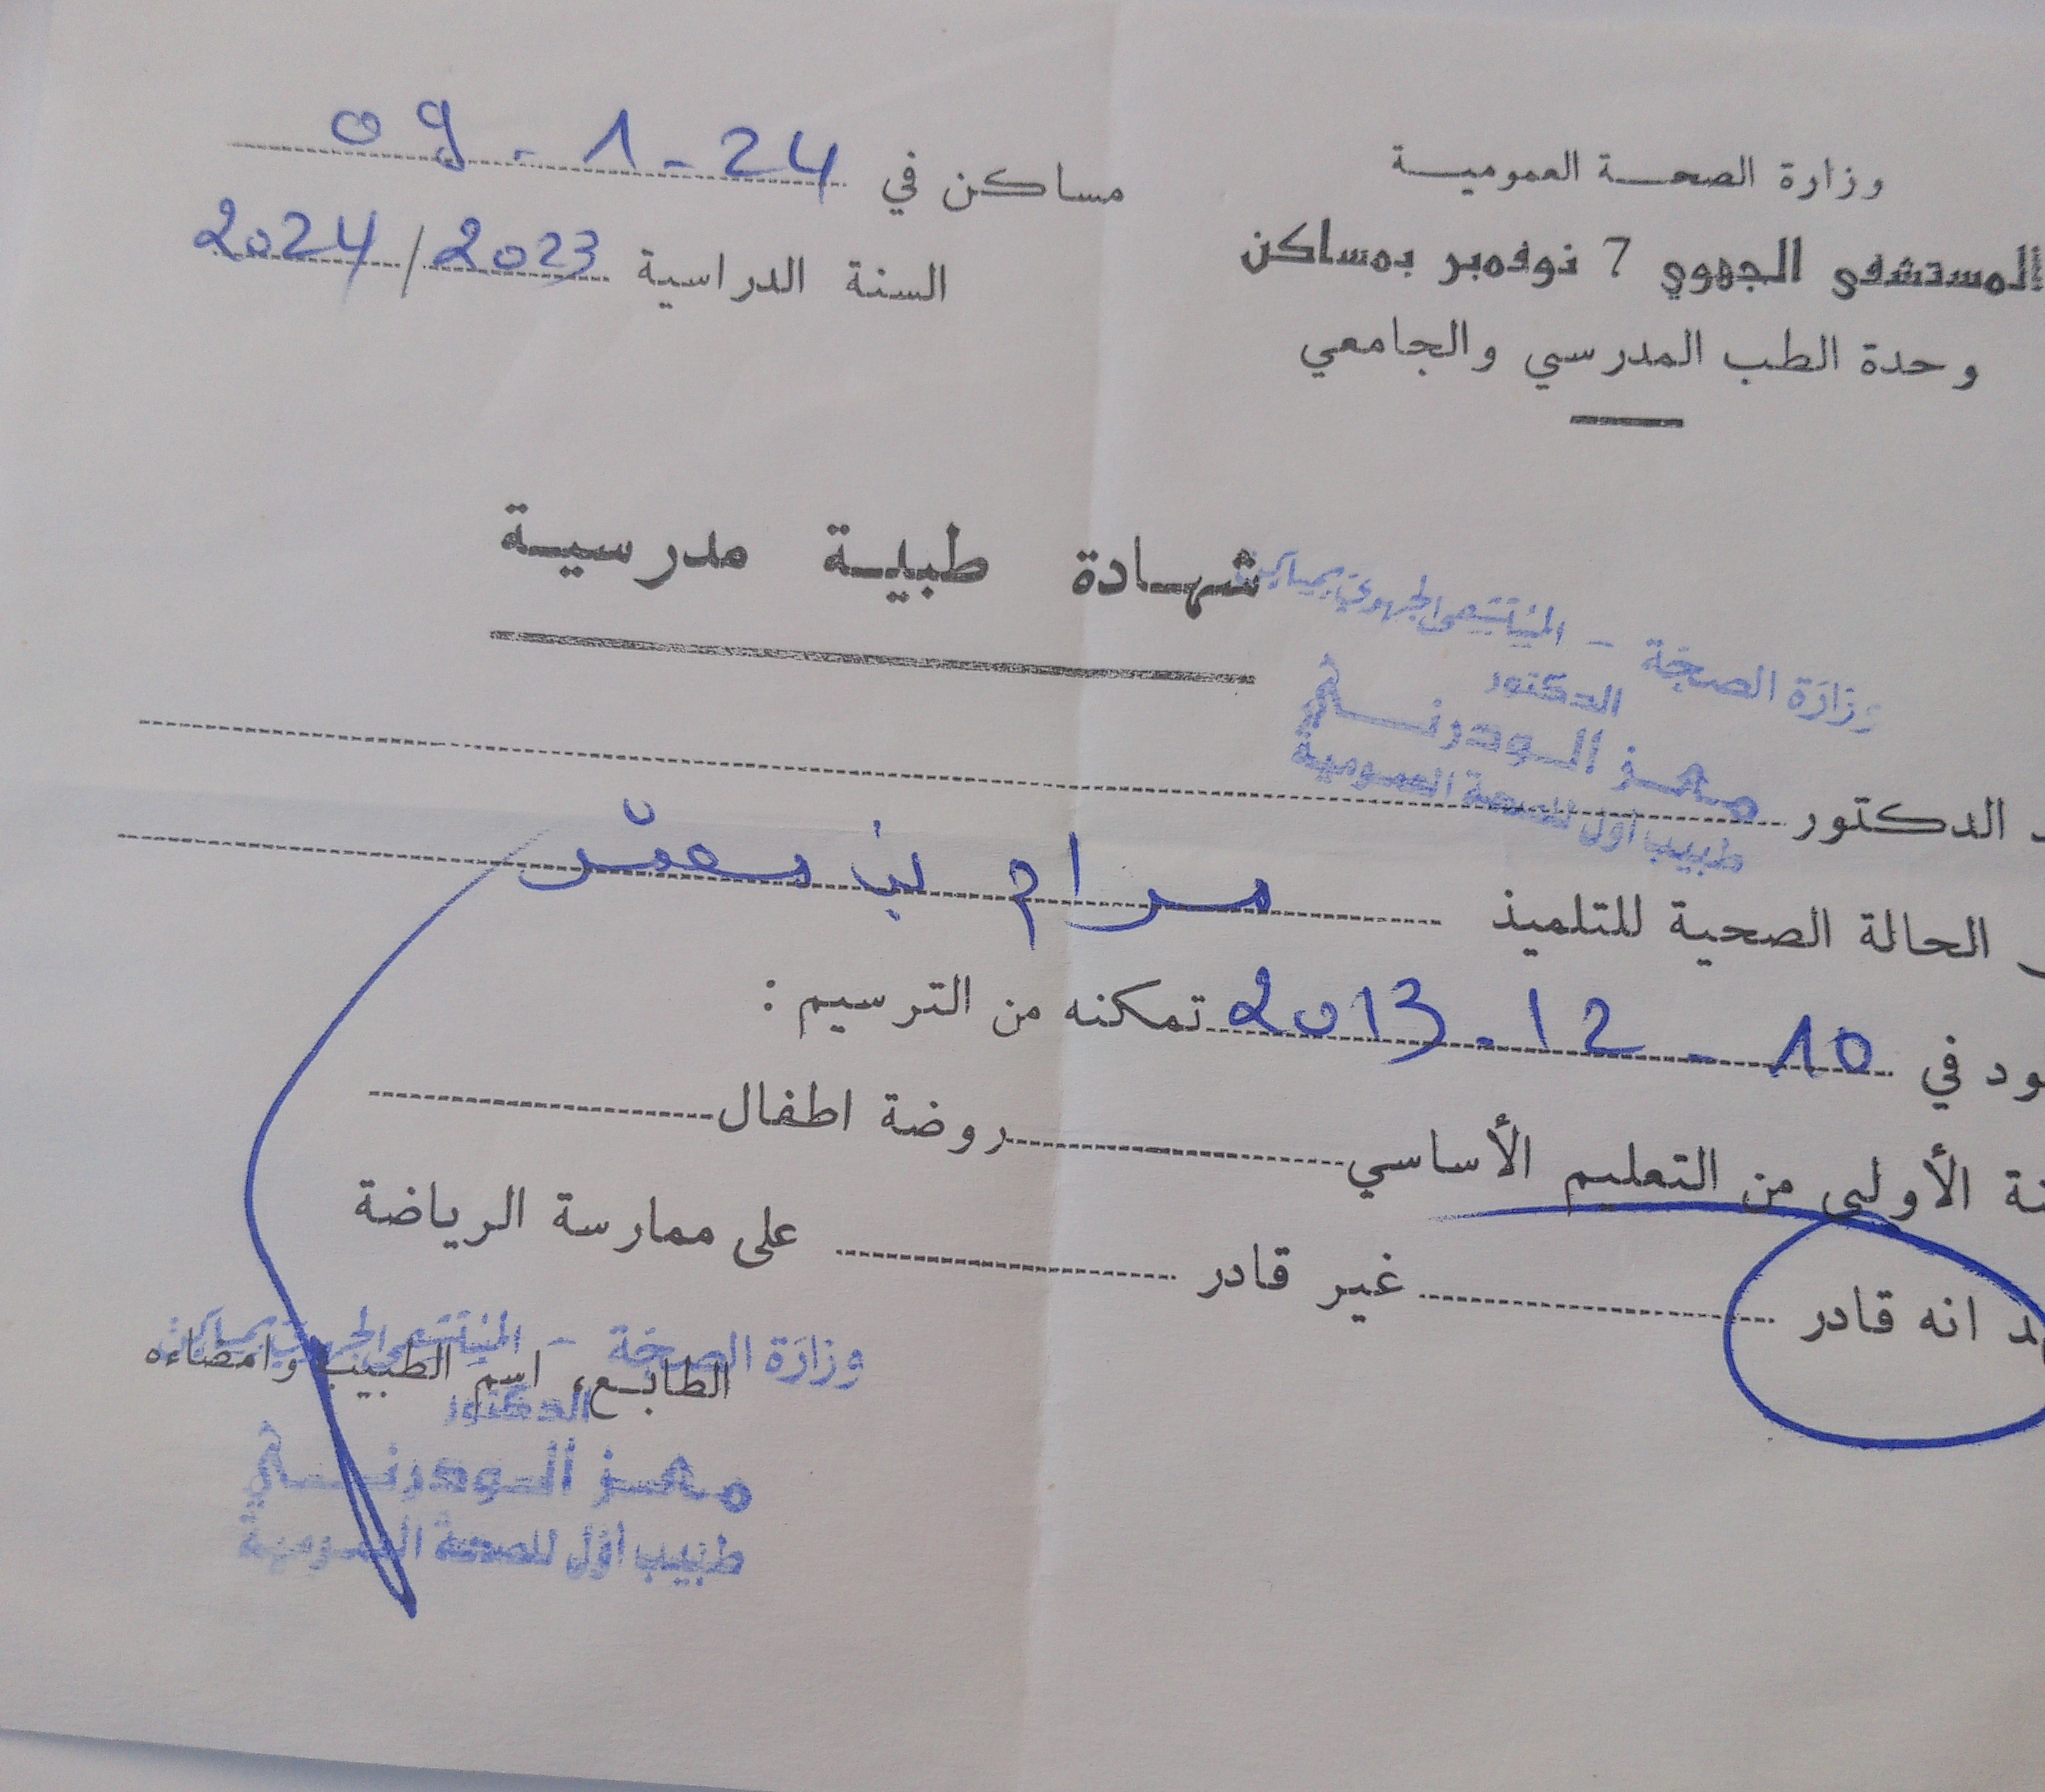 وزارة الصحة العمومية
المستشفى الجهوي 7 نوفمبر بمساكن
وحدة الطب المدرسي والجامعي
مساكن في 24 - 1 - 09
السنة الدراسية 2023/2024
شهادة طبية مدرسية
وزارة الصحة - المستشفى الجهوي بمساكن
الدكتور
معز الودرني
طبيب أول للصحة العمومية
الدكتور
الحالة الصحية للتلميذ مرام بن معمّر
في 10 - 12 - 2013 تمكنه من الترسيم :
الأولى من التعليم الأساسي روضة اطفال
انه قادر غير قادر على ممارسة الرياضة
الطابع، اسم الطبيب وامضاءه
وزارة الصحة - المستشفى الجهوي بمساكن
الدكتور
معز الودرني
طبيب أول للصحة العمومية